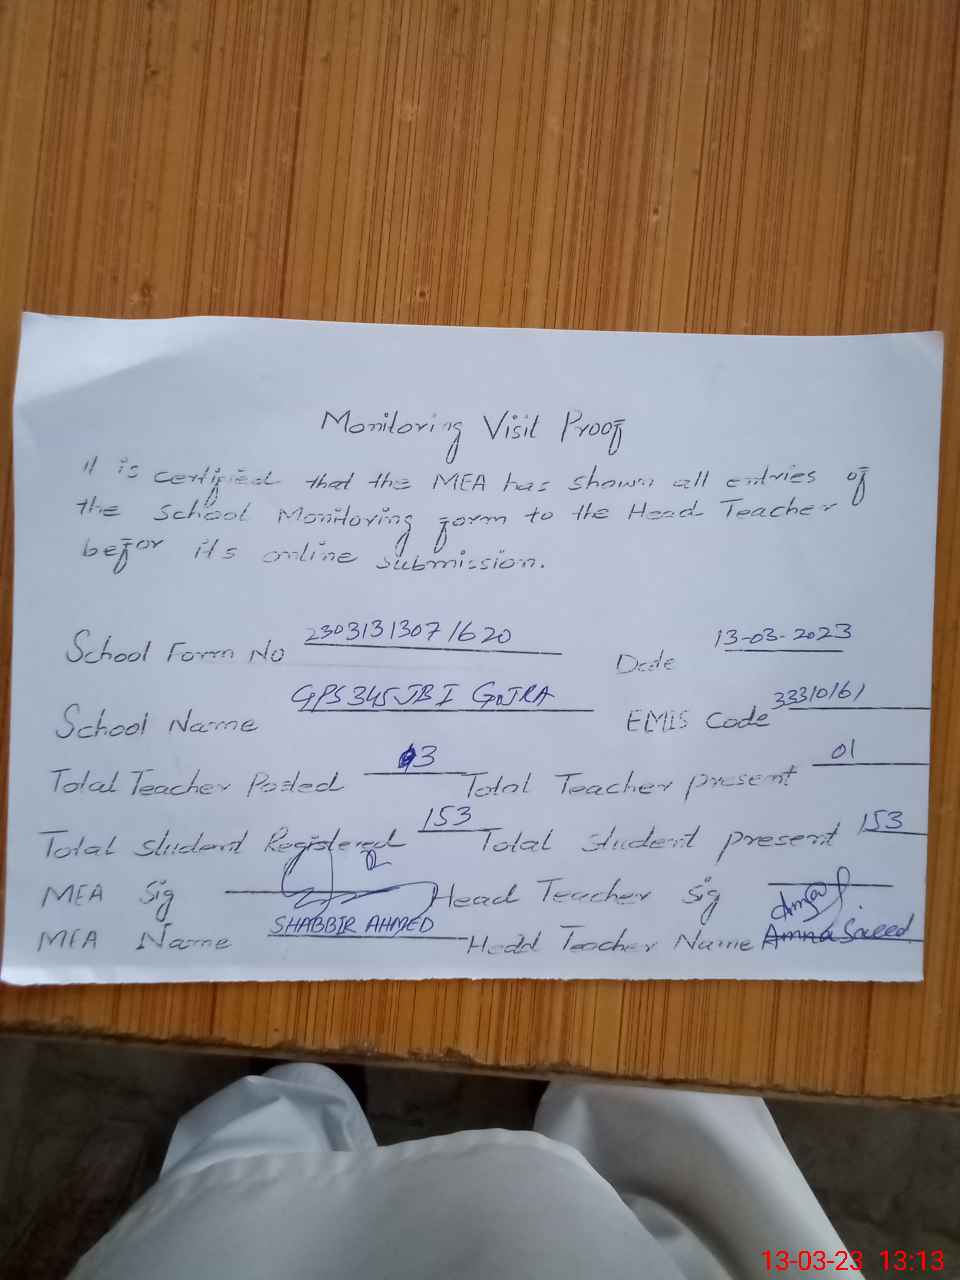 Monitoring Visit Proof
It is certified that the MEA has shown all entries of
the School Monitoring form to the Head Teacher
befor its online submission.
School Form No 2303131307/620 Date 13-03-2023
School Name GPS 345 JB I GOJRA EMIS Code 33310161
Total Teacher Posted 03 Total Teacher present 01
Total student Registered 153 Total student present 153
MEA Sig Head Teacher Sig
MEA Name SHABBIR AHMED Head Teacher Name Amna Saeed
13-03-23 13:13